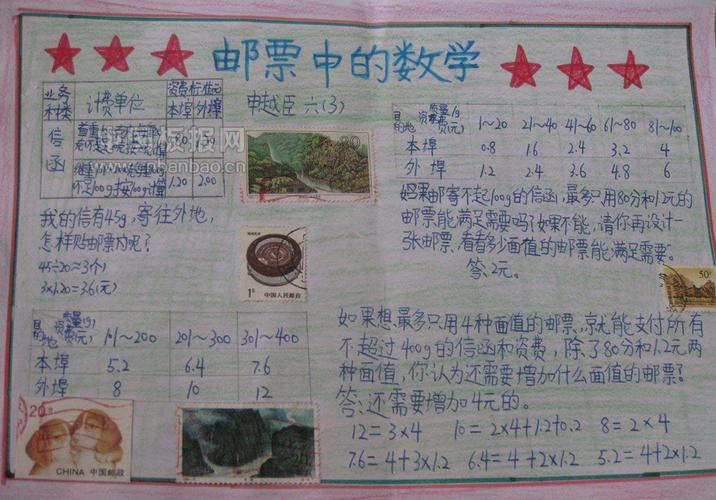 邮票中的数学
申越臣 六(3)
业务种类 计费单位 资费标准/元
本埠 外埠
信函 首重100g内,每重20g
1.20 2.00
我的信有45g,寄往外地,
怎样贴邮票内呢?
45÷20≈3(个)
3×1.20=3.6(元)
目的地 资费(元) 质量/g 1~20 21~40 41~60 61~80 81~100
本埠 0.8 1.6 2.4 3.2 4
外埠 1.2 2.4 3.6 4.8 6
如果邮寄不起100g的信函,最多只用80分和1.2元的
邮票能满足需要吗?如果不能,请你再设计一
张邮票,看看多少面值的邮票能满足需要。
答:2元。
目的地 资费(元) 质量(g) 101~200 201~300 301~400
本埠 5.2 6.4 7.6
外埠 8 10 12
如果想最多只用4种面值的邮票,就能支付所有
不超过400g的信函和资费,除了80分和1.2元两
种面值,你认为还需要增加什么面值的邮票?
答:还需要增加4元的。
12=3×4 10=2×4+1.2+0.2 8=2×4
7.6=4+3×1.2 6.4=4+2×1.2 5.2=4+2×1.2
80
1元
中国人民邮政
50分
20分
CHINA 中国邮政